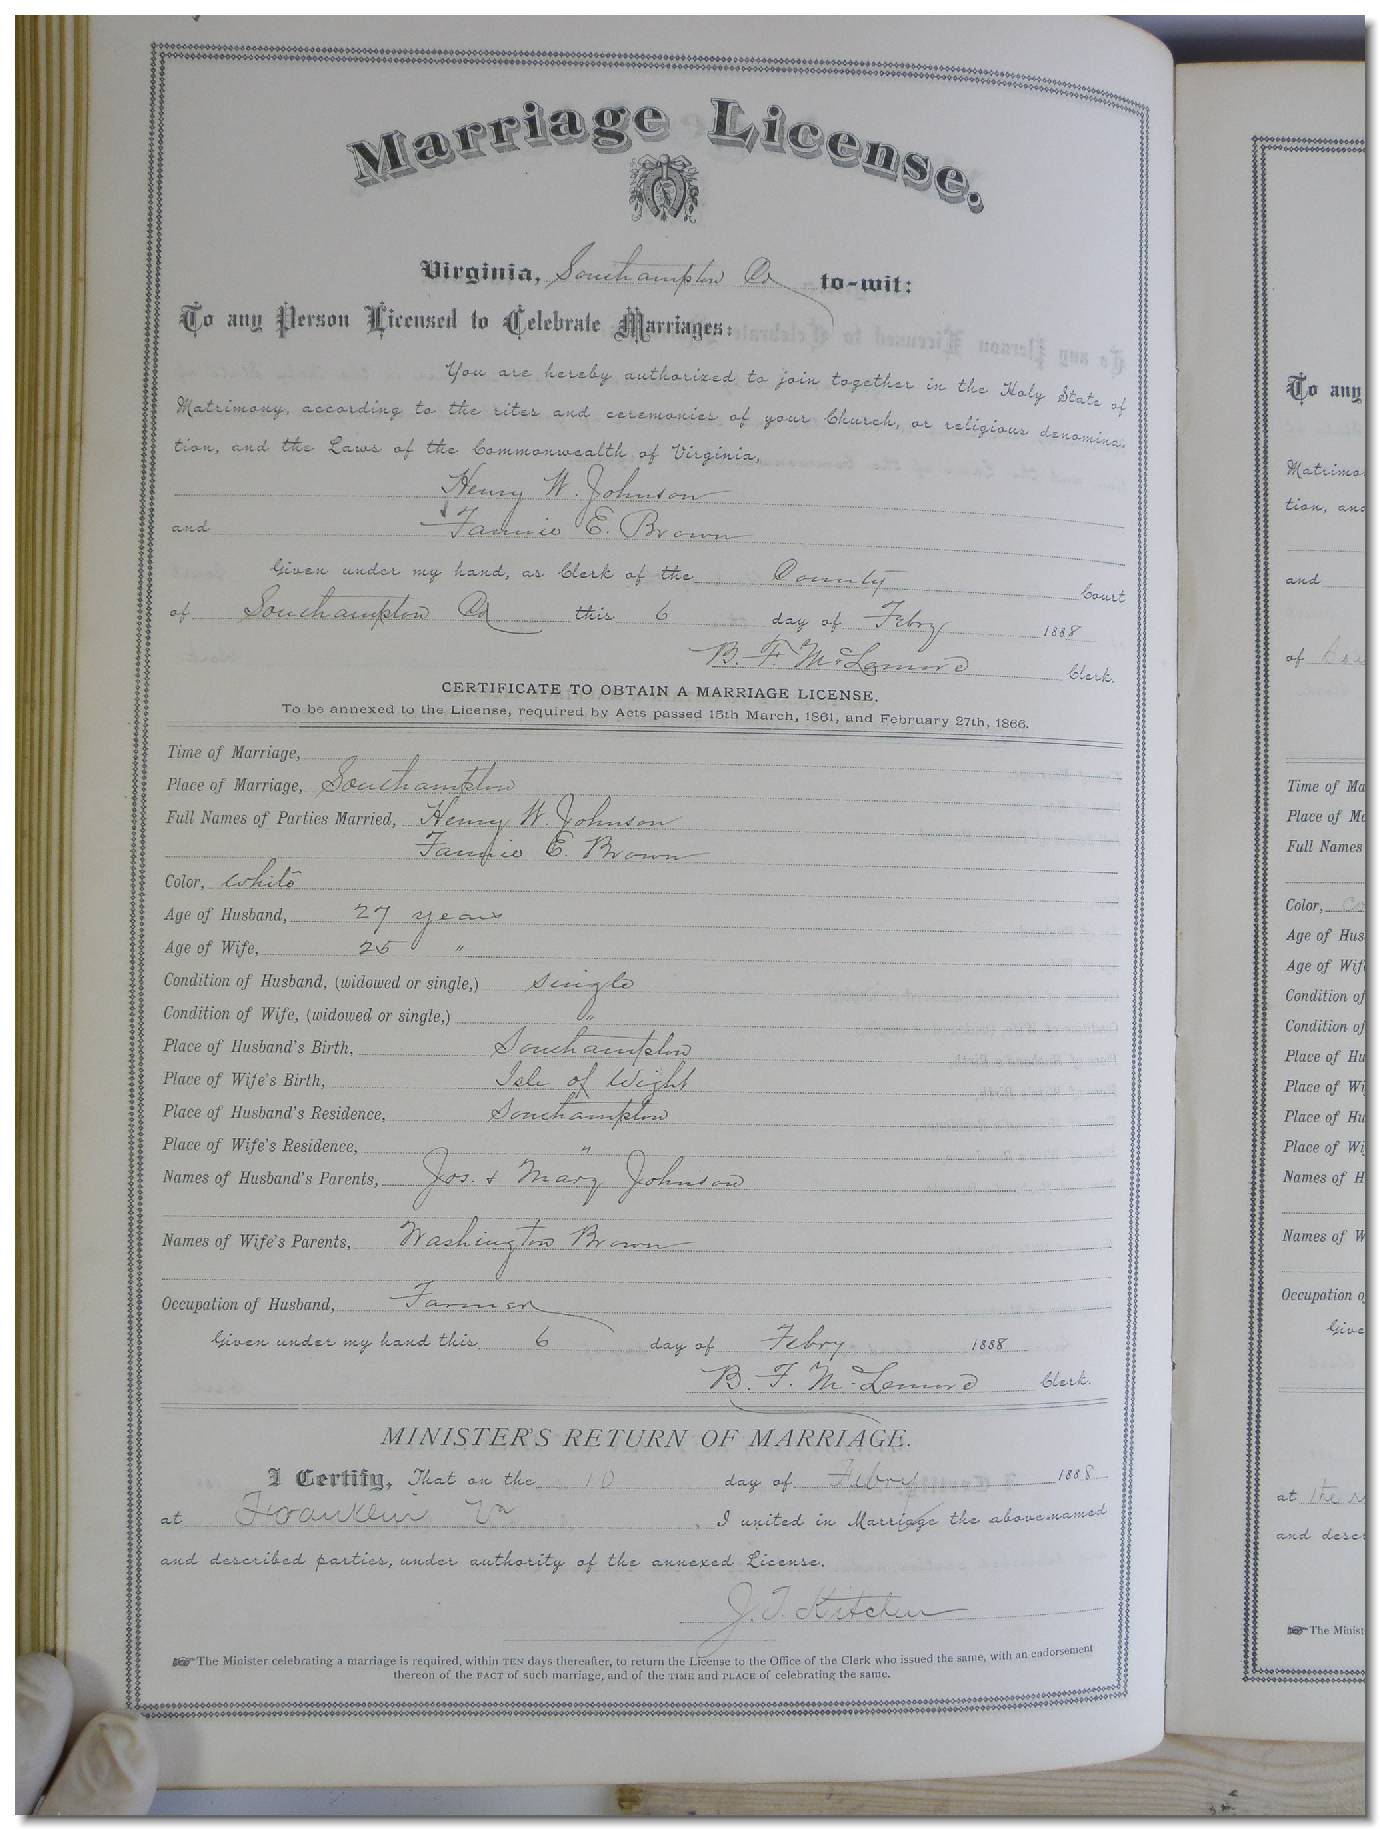 Marriage License.
Virginia, Southampton Co to-wit:
To any Person Licensed to Celebrate Marriages:
You are hereby authorized to join together in the Holy State of
Matrimony, according to the rites and ceremonies of your Church, or religious denomina-
tion, and the Laws of the Commonwealth of Virginia,
Henry W. Johnson
and Fannie E. Brown
Given under my hand, as Clerk of the County Court
of Southampton Co this 6 day of Febry 1888
B. F. McLemore Clerk.
CERTIFICATE TO OBTAIN A MARRIAGE LICENSE.
To be annexed to the License, required by Acts passed 15th March, 1861, and February 27th, 1866.
Time of Marriage,
Place of Marriage, Southampton
Full Names of Parties Married, Henry W. Johnson
Fannie E. Brown
Color, White
Age of Husband, 27 years
Age of Wife, 25 "
Condition of Husband, (widowed or single,) single
Condition of Wife, (widowed or single,) "
Place of Husband's Birth, Southampton
Place of Wife's Birth, Isle of Wight
Place of Husband's Residence, Southampton
Place of Wife's Residence, "
Names of Husband's Parents, Jos. & Mary Johnson
Names of Wife's Parents, Washington Brown
Occupation of Husband, Farmer
Given under my hand this 6 day of Febry 1888
B. F. McLemore Clerk.
MINISTER'S RETURN OF MARRIAGE.
I Certify, That on the 10 day of Febry 1888
at Franklin Va, I united in Marriage the above-named
and described parties, under authority of the annexed License.
J. T. Kitchen
The Minister celebrating a marriage is required, within TEN days thereafter, to return the License to the Office of the Clerk who issued the same, with an endorsement
thereon of the FACT of such marriage, and of the TIME and PLACE of celebrating the same.
To any
Matrimo
tion, and
and
of
Time of Ma
Place of Ma
Full Names
Color, co
Age of Hus
Age of Wif
Condition of
Condition of
Place of Hu
Place of Wi
Place of Hu
Place of Wi
Names of H
Names of W
Occupation o
Give
at the
and desc
The Minist